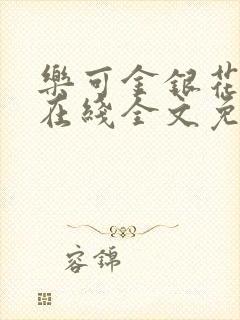 樂可金銀花
在綫全文免
容錦